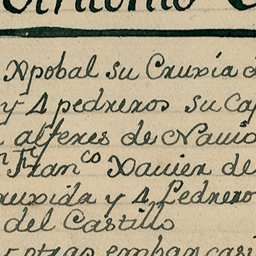 Antonio
Xpobal su Cruxia
y 4 pedreros su Ca
alferes de Navio
n Franco Xavier de
ruxida y 4 Pedrero
del Castillo
y otras embarcasi